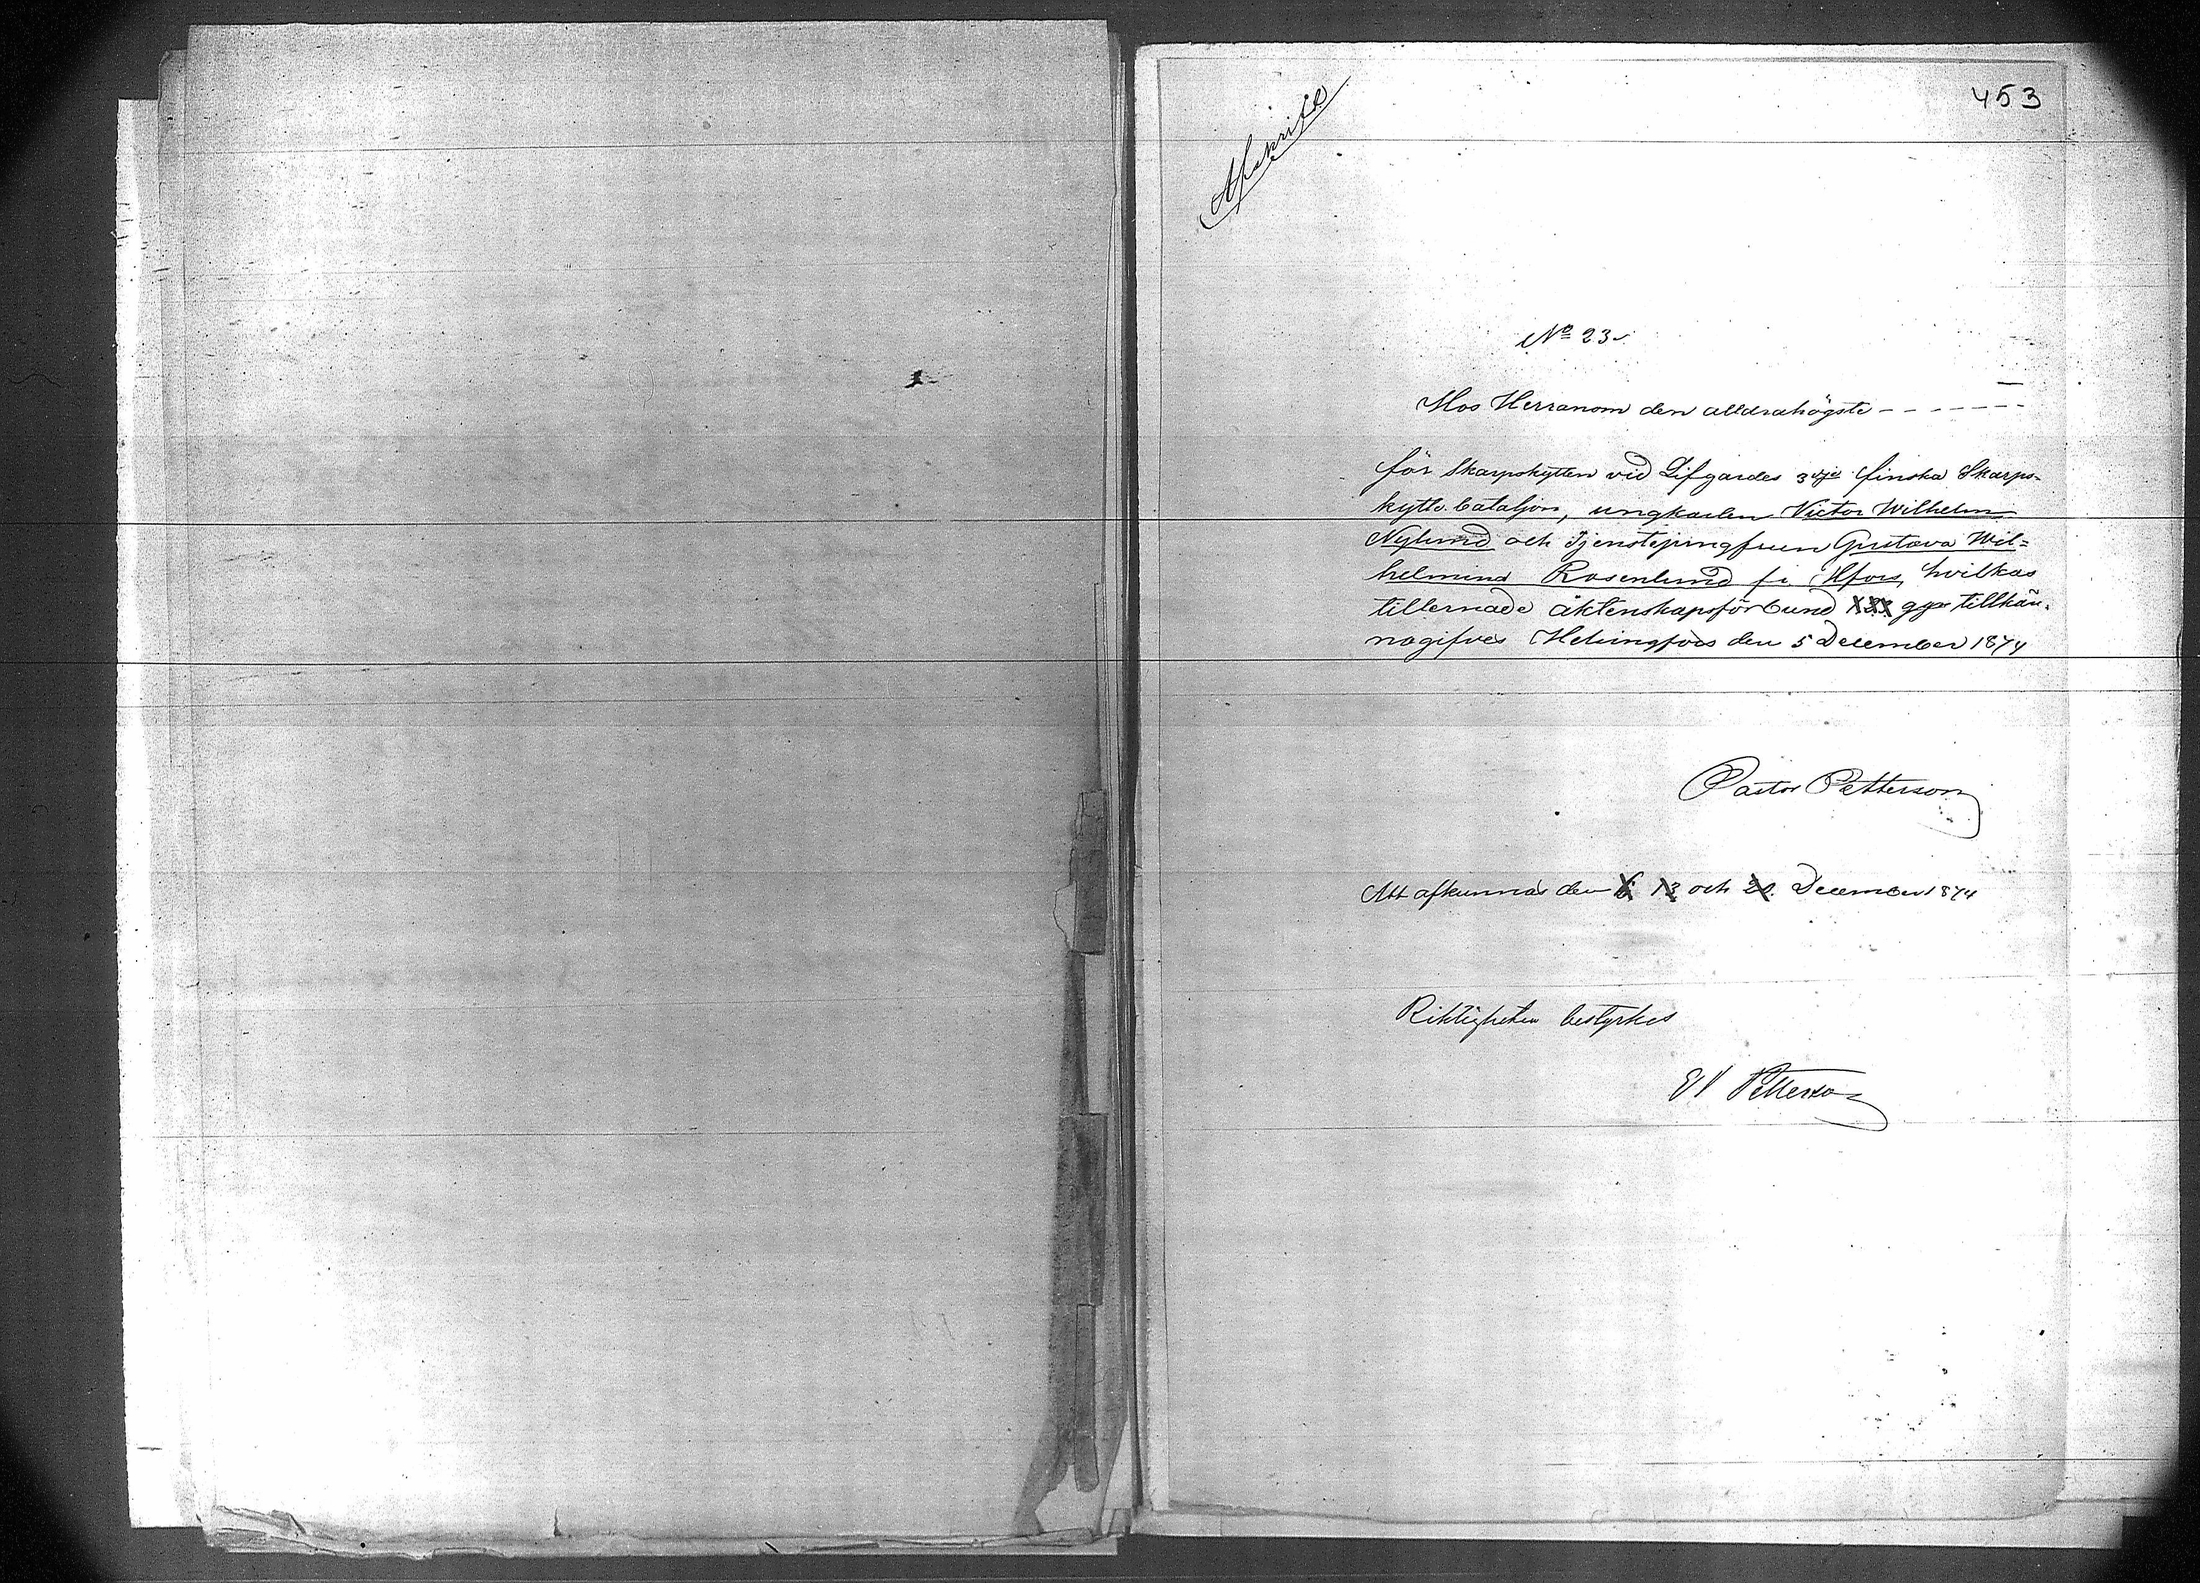 453
Afskrift
No 23.
Hos Herranom den alldrahögste - - - - - - -
för Skarpskytten vid Lifgardes 3dje finska Skarps-
kytte bataljon, ungkarlen Victor Wilhelm
Nylund och Tjenstejungfrun Gustava Wil=
helmina Rosenlund fr Hfors, hvilkas
tillernade äktenskapsförbund XXX ggr tillkän-
nagifves Helsingfors den 5 December 1874
Pastor Petterson
Att afkunnas den 6 13 och 20. December 1874
Riktigheten bestyrkes
Petterson